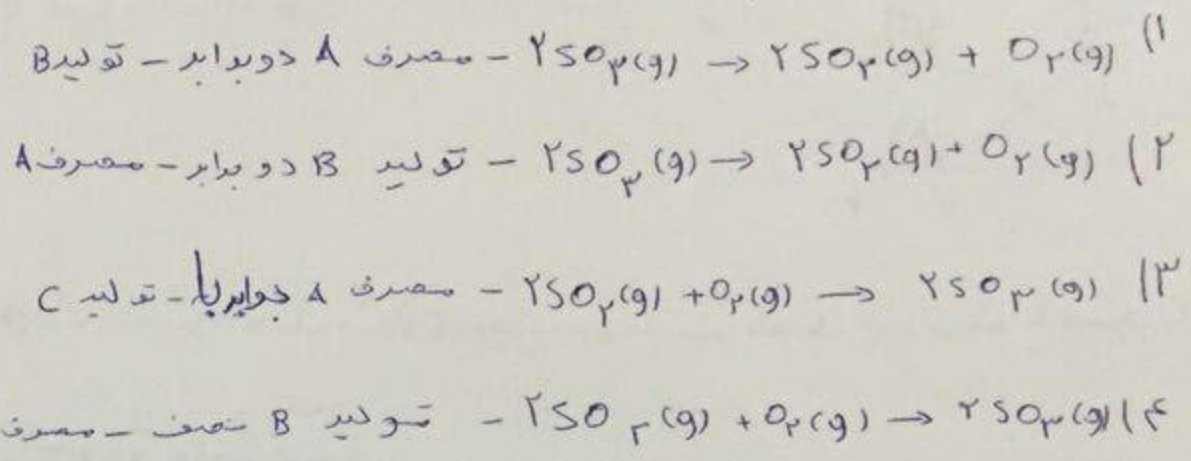 ۱) ۲SO۳(g) → ۲SO۲(g) + O۲(g) - مصرف A دوبرابر - تولید B
۲) ۲SO۳(g) → ۲SO۲(g) + O۲(g) - تولید B دو برابر - مصرف A
۳) ۲SO۲(g) + O۲(g) → ۲SO۳(g) - مصرف A برابر با - تولید C
۴) ۲SO۲(g) + O۲(g) → ۲SO۳(g) - تولید B نصف - مصرف